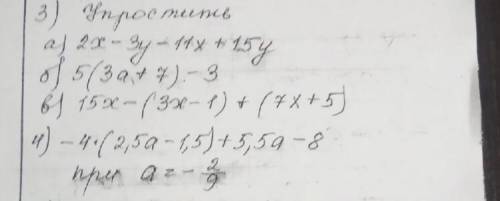 3) Упростить
а) 2x - 3y - 11x + 15y
б) 5(3a + 7) - 3
в) 15x - (3x - 1) + (7x + 5)
4) -4·(2,5a - 1,5) + 5,5a - 8
при a = -2/9